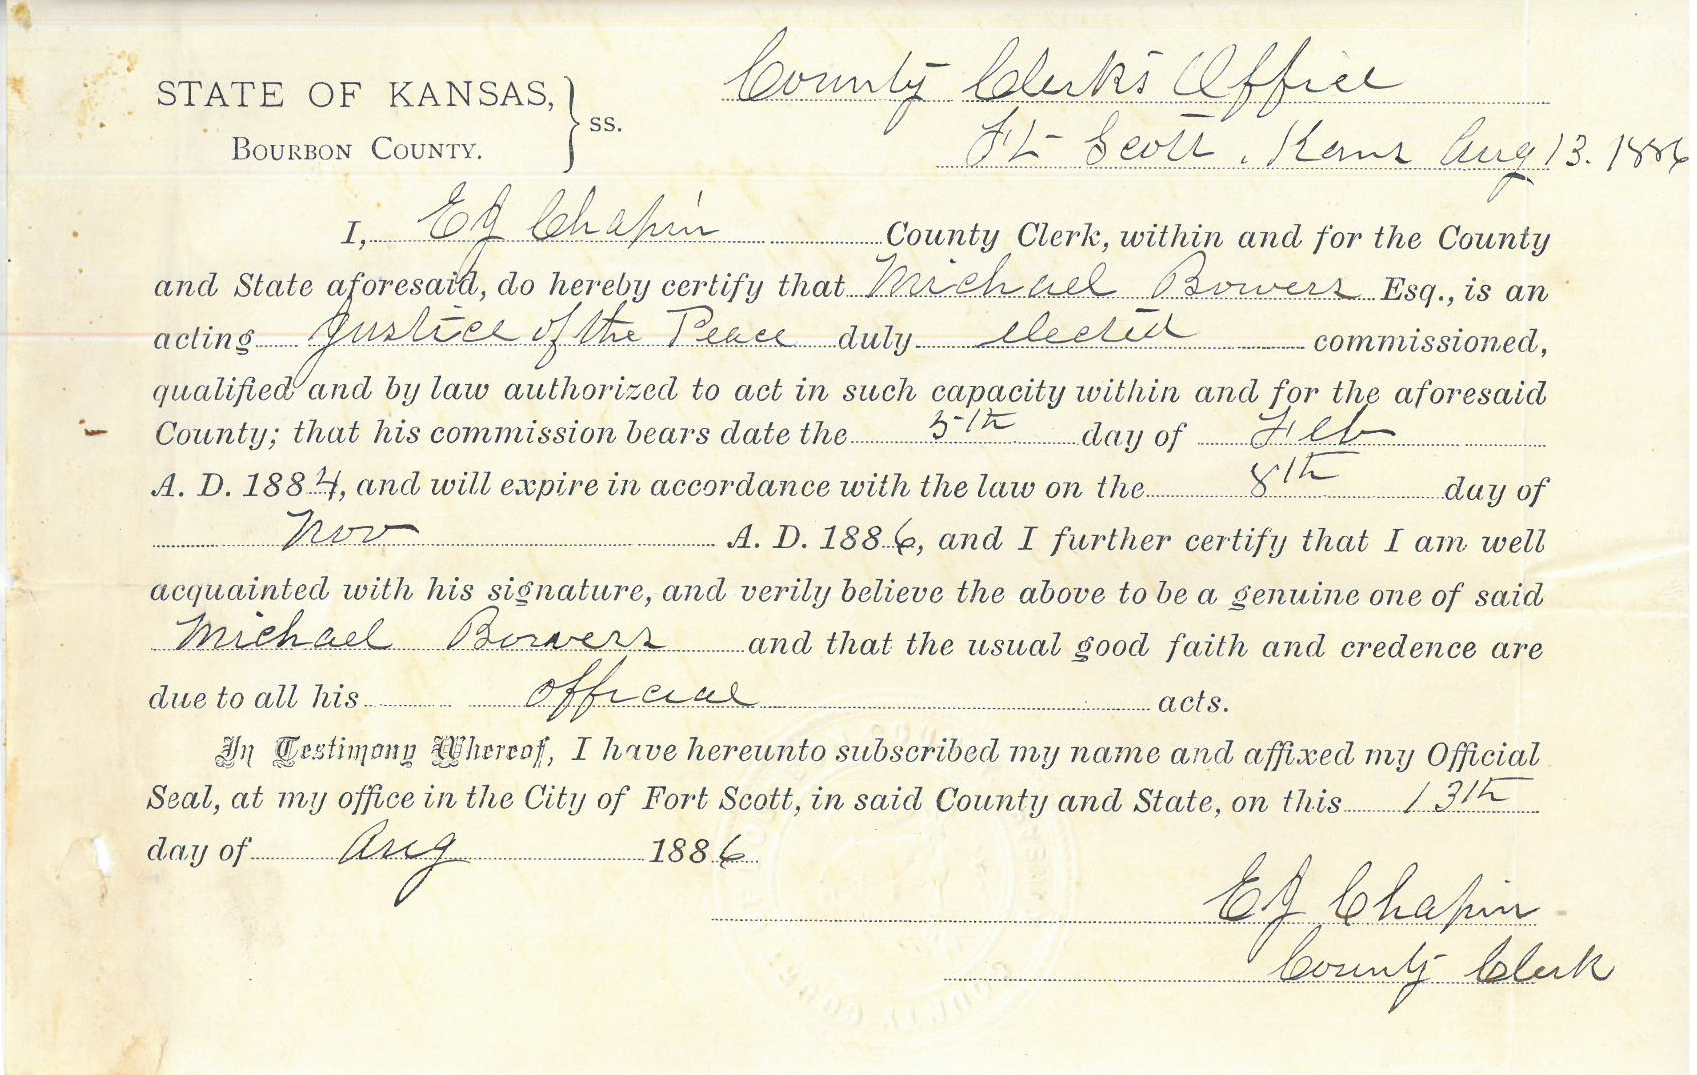 STATE OF KANSAS,
BOURBON COUNTY.
ss.
County Clerk's Office
Ft Scott, Kans Aug 13. 1886
I, EJ Chapin County Clerk, within and for the County
and State aforesaid, do hereby certify that Michael Bowers Esq., is an
acting Justice of the Peace duly elected commissioned,
qualified and by law authorized to act in such capacity within and for the aforesaid
County; that his commission bears date the 5th day of Feb
A. D. 1884, and will expire in accordance with the law on the 8th day of
Nov A. D. 1886, and I further certify that I am well
acquainted with his signature, and verily believe the above to be a genuine one of said
Michael Bowers and that the usual good faith and credence are
due to all his official acts.
In Testimony Whereof, I have hereunto subscribed my name and affixed my Official
Seal, at my office in the City of Fort Scott, in said County and State, on this 13th
day of Aug 1886
EJ Chapin
County Clerk